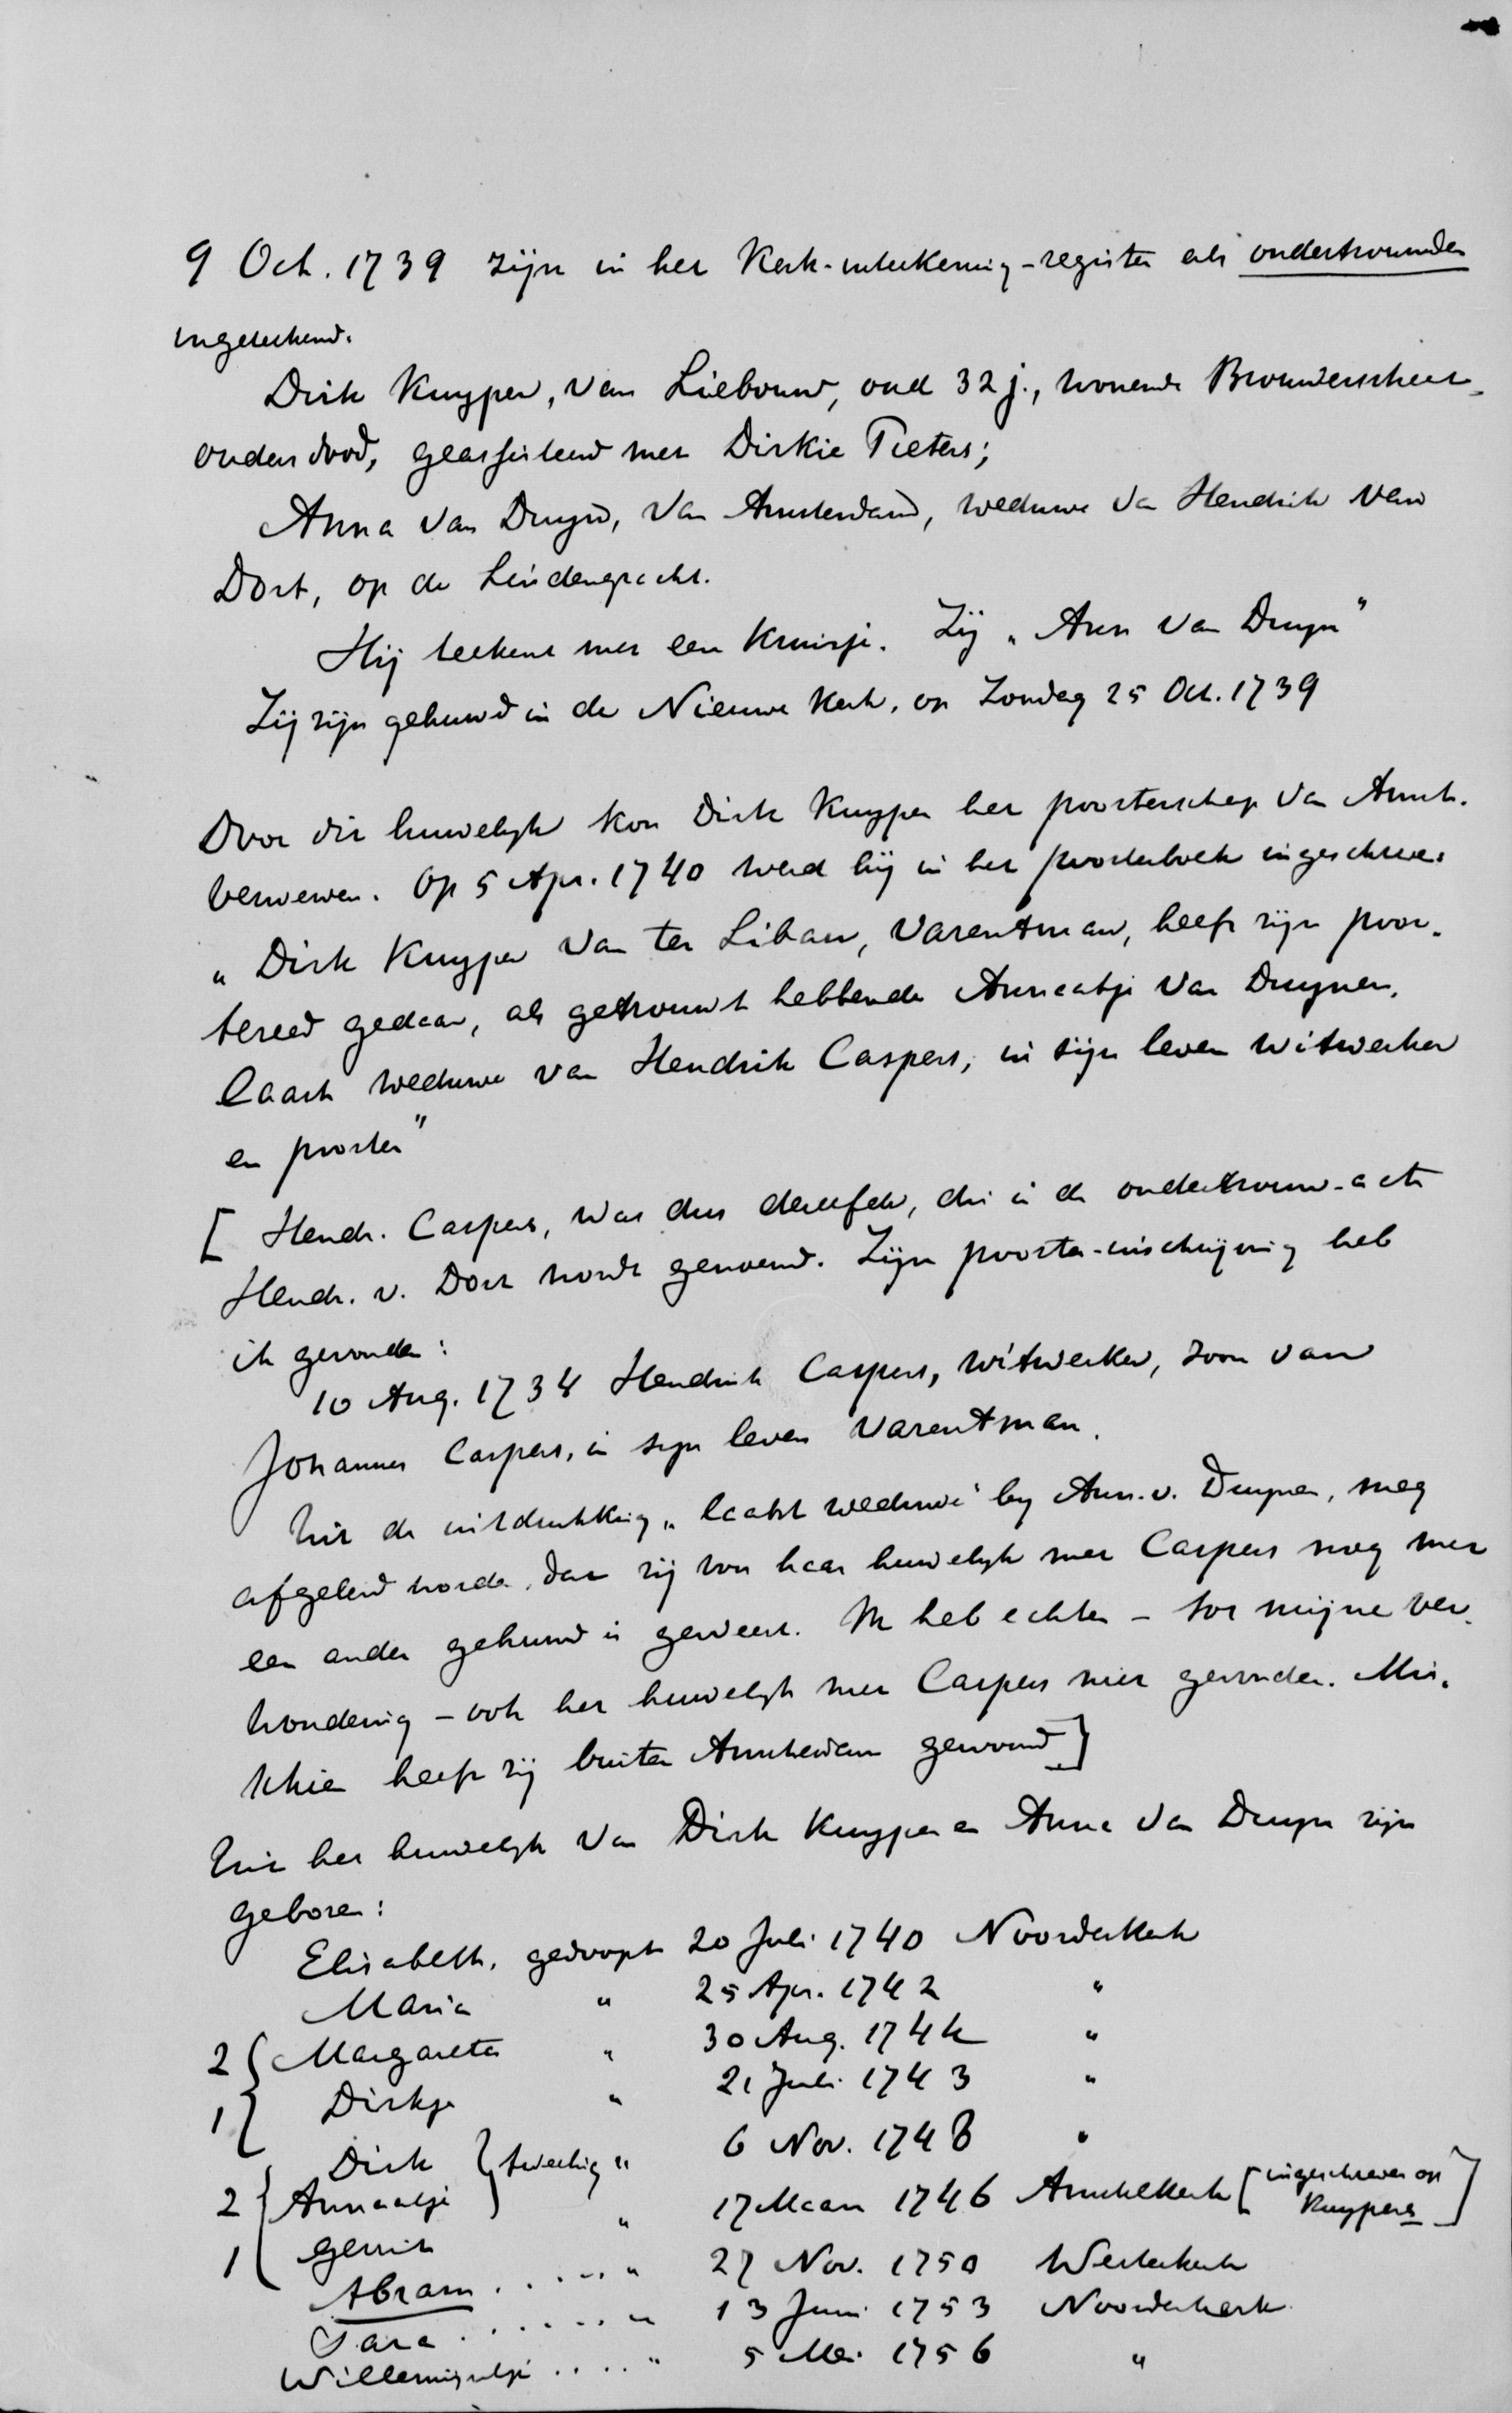 9 Oct. 1739 zijn in het Kerk-inteekening-register als ondertrouwden
ingeteekend.
Dirk Kuyper, van Liebouw, oud 32 j., wonende Brouwerscheer-
ouders dood, geassisteerd met Dirkie Pieters;
Anna van Druyn, van Amsterdam, weduwe van Hendrik van
Dort, op de Leidengracht.
Hij teekent met een Kruisje. Zij „Ann van Druyn"
Zij zijn gehuwd in de Nieuwe Kerk, op Zondag 25 Oct. 1739
Door dit huwelijk kon Dirk Kuyper het poorterschap van Amst.
verwerven. Op 5 Apr. 1740 werd hij in het poorterboek ingeschreven:
„Dirk Kuyper van ter Libau, Varentman, heeft zijn poor-
tereed gedaan, als getrouwt hebbende Annaatje van Druynen,
laast weduwe van Hendrik Caspers, in zijn leven witwerker
en poorter"
[Hendr. Caspers, was dus dezelfde, die in de ondertrouw-acte
Hendr. v. Dort wordt genoemd. Zijn poorter-inschrijving heb
ik gevonden:
10 Aug. 1734 Hendrik Caspers, witwerker, zoon van
Johannes Caspers, in sijn leven Varentman.
Uit de uitdrukking „laatst weduwe" by Ann. v. Druynen, mag
afgeleid worden, dat zij voor haar huwelijk met Caspers nog met
een ander gehuwd is geweest. Ik heb echter – tot mijne ver-
wondering – ook het huwelijk met Caspers niet gevonden. Mis-
schien heeft zij buiten Amsterdam gewoond]
Uit het huwelijk van Dirk Kuyper en Anna van Druyn zijn
geboren:
Elisabeth, gedoopt 20 Juli 1740 Noorderkerk
Maria " 25 Apr. 1742 "
2 { Margareta " 30 Aug. 1744 "
1 { Dirkje " 21 Juli 1743 "
Dirk } tweeling " 6 Nov. 1748 "
2 { Annaatje
1 Gerrit " 17 Maart 1746 Amstelkerk [ingeschreven op
Kuypers]
Abram . . . . . " 27 Nov. 1750 Westerkerk
Sara . . . . . . " 13 Juni 1753 Noorderkerk
Willemijntje . . . . " 5 Mei 1756 "